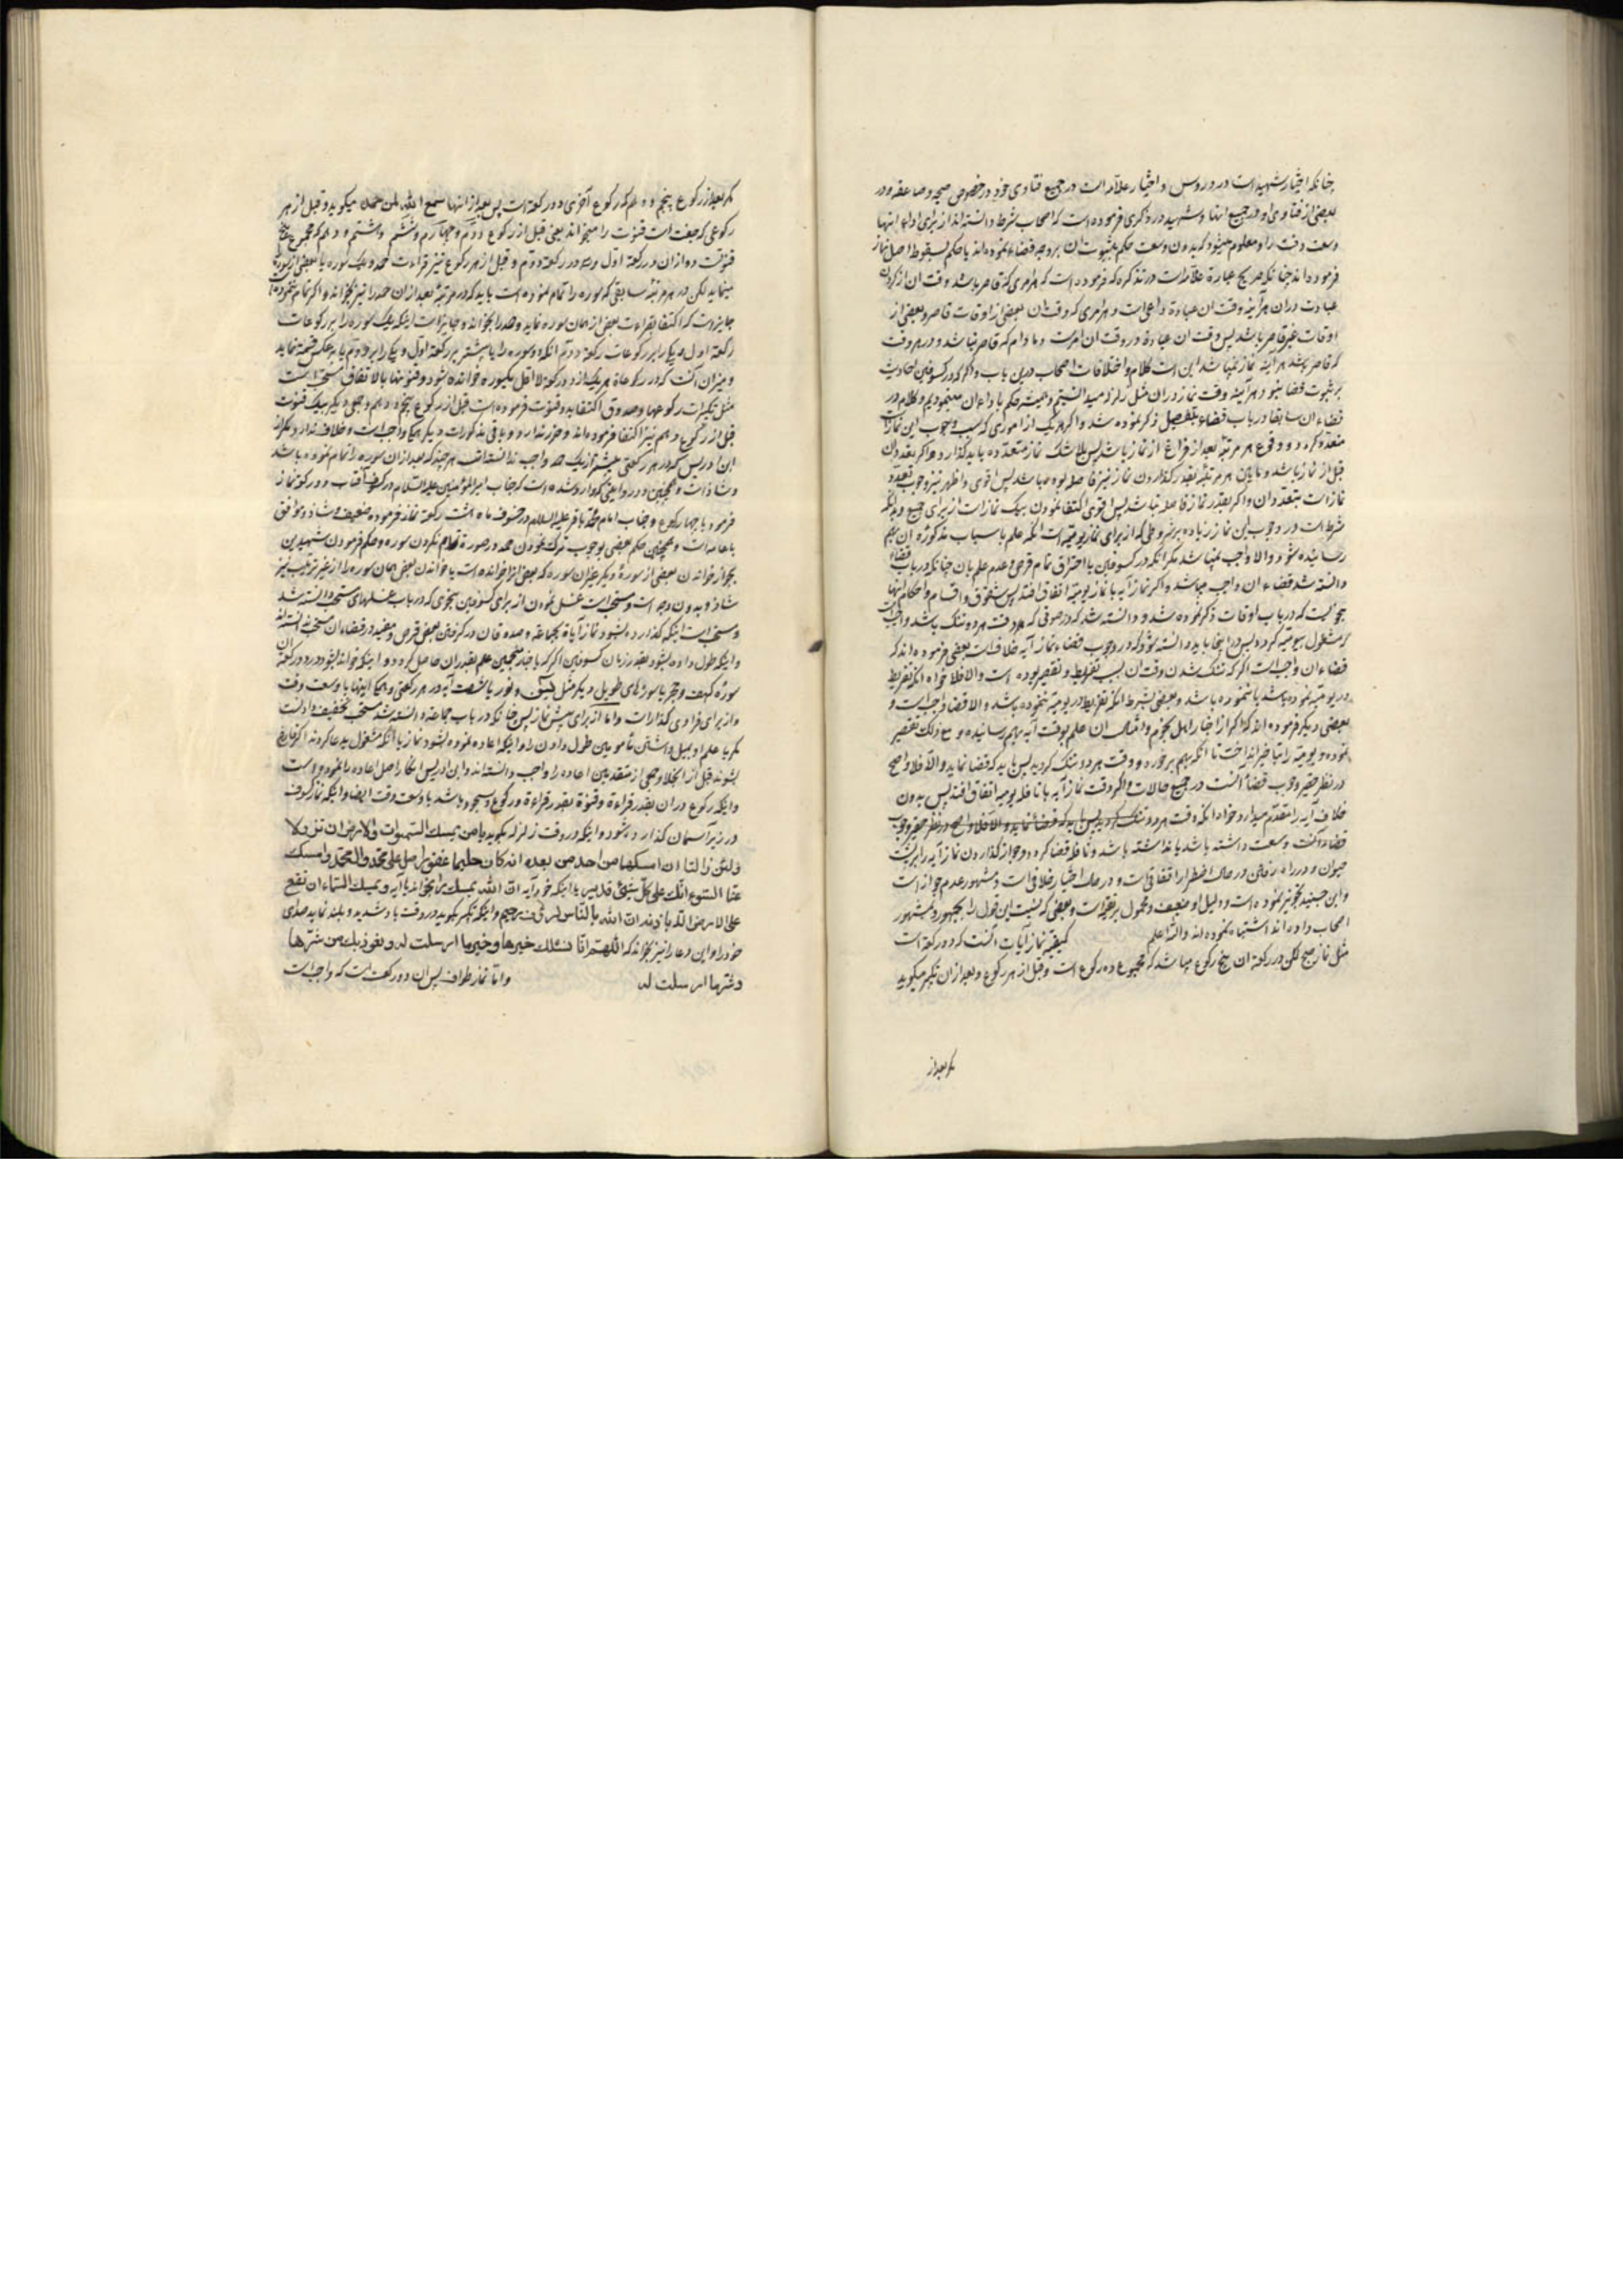 چنانکه اختیار شهید است در دروس و اختیار علامه است در جمیع فتاوی خود در خصوص صیحه و صاعقه و در
بعضی از فتاوی او در جمیع اینها و شهید در ذکری فرموده است که اصحاب شرط دانسته‌اند از برای اداء اینها
وسعت وقت را و معلوم میشود که بدون وسعت حکم بثبوت آن بر وجه قضاء ننموده‌اند یا حکم بسقوط اصل نماز
فرموده‌اند چنانکه صریح عبارة علامه است در تذکره که فرموده است که هر امری که قاصر باشد وقت آن از کردن
عبادت در آن هرآینه وقت آن عبادة داعی است و هر امری که وقت آن بعضی از اوقات قاصر و بعضی از
اوقات غیر قاصر باشد پس وقت آن عبادة در وقت آن امر است و مادام که قاصر نباشد و در هر وقت
که قاصر باشد هرآینه نماز نمیباشد این است کلام و اختلافات اصحاب درین باب و اگر که در کسوفین احادیث
بر ثبوت قضا نبود هرآینه وقت نماز در آن مثل زلزله میدانستیم و همیشه حکم باداء آن مینمودیم و کلام در
قضاء آن سابقا در باب قضاء بتفصیل ذکر نموده شد و اگر هر یک از اموری که سبب وجوب این نماز است
متعدد کردد و وقوع هر مرتبه بعد از فراغ از نماز باشد پس بلا شک نماز متعدده باید گذارد و هر اکر بتعدد آن
قبل از نماز باشد و مابین هر مرتبه بقدر گذاردن نماز نیز فاصله بوده باشد پس اقوی و اظهر نیز وجوب تعدد
نماز است بتعدد آن و اگر بقدر نماز فاصله نباشد پس اقوی اکتفا نمودن بیک نماز است از برای جمیع و بدانکه
شرط است در وجوب این نماز زیاده بر شروطی که از برای نماز یومیه است آنکه علم باسباب مذکوره آن بهم
رسانیده شود و الا واجب نمیباشد مگر آنکه در کسوفین با احتراق تمام قرص و عدم علم بان چنانکه در باب قضاء
دانسته شد قضاء آن واجب میباشد و اگر نماز آیه با نماز یومیه اتفاق افتد پس شقوق و اقسام و احکام اینها
بنحویست که در باب اوقات ذکر نموده شد و دانسته شد که در صورتی که وقت هر دو تنک باشد واجب است
که مشغول بیومیه کردد پس در اینجا باید دانسته شود که در وجوب قضاء نماز آیه خلاف است بعضی فرموده‌اند که
قضاء آن واجب است اگر که تنک شدن وقت آن بسبب تفریط و تقصیر بوده است والا فلا خواه آنکه تفریط
در یومیه نموده باشد یا ننموده باشد و بعضی بشرط آنکه تفریط در یومیه ننموده باشد و الا قضا واجب است و
بعضی دیگر فرموده‌اند که اگر از اخبار اهل نجوم و امثال آن علم بوقت آیه بهم رسانیده و مع ذلک تقصیر
نموده و یومیه را بتاخیر انداخت تا آنکه بهم بر خورده و وقت هر دو تنک گردید پس باید که قضا نماید و الا فلا و اصح
در نظر حقیر وجوب قضاء آنست در جمیع حالات و اگر وقت نماز آیه با نافله یومیه اتفاق افتد پس بدون
خلاف آیه را مقدم میدارد خواه آنکه وقت هر دو تنک گردید پس باید که قضا نماید و الا فلا و اصح در نظر حقیر وجوب
قضاء آنست وسعت داشته باشد یا نداشته باشد و نافله قضا کرده و جواز گذاردن نماز آیه را بر پشت
حیوان و در راه رفتن در حال اضطرار اتفاقی است و در حال اختیار خلافی است و مشهور عدم جواز است
و ابن جنید تجویز نموده است و دلیل او ضعیف و محمول بر تقیه است و بعضی که نسبت این قول را بجمهور و مشهور
اصحاب داده‌اند اشتباه نموده‌اند والله اعلم کیفیة نماز آیات آنست که دو رکعة است
مثل نماز صبح لکن در رکعة آن پنج رکوع میباشد که مجموع ده رکوع است و قبل از هر رکوع و بعد از آن تکبیر میگوید
مگر بعد از
مگر بعد از رکوع پنجم و دهم که رکوع آخری دو رکعة است پس بعد از اینها سمع الله لمن حمده میگوید و قبل از هر
رکوعی که جفت است قنوت را میخواند یعنی قبل از رکوع دوم و چهارم و ششم و هشتم و دهم که مجموع پنج
قنوتست دو از آن در رکعة اول و سه در رکعة دوم و قبل از هر رکوع نیز قراءت حمد و یک سوره یا بعضی از سوره
مینماید لکن در هر مرتبه سابقی که سوره را تمام نموده است باید که در مرتبه بعد از آن حمد را نیز بخواند و اگر تمام ننموده
جایز است که اکتفا بقراءت بعضی از همان سوره نماید و حمد را نخواند و جایز است اینکه یک سوره را بر رکوعات
رکعة اول و یکی را بر رکوعات رکعة دوم آنکه دو سوره را یا بیشتر بر رکعة اول و یکی را بر دوم یا بر عکس قسمة نماید
و میزان آنست که در رکوعات هر یک از دو رکعة لااقل یکسوره خوانده شود و قنوتها بالاتفاق مستحب است
مثل تکبیرات رکوعها و صدوق اکتفا بدو قنوت فرموده است قبل از رکوع پنجم و دهم و جمعی دیگر بیک قنوت
قبل از رکوع دهم نیز اکتفا فرموده‌اند و ضرر ندارد و باقی مذکورات دیگر همگی واجب است و خلاف ندارد مگر از
ابن ادریس که در هر رکعتی بیشتر از یک حمد واجب ندانسته است هر چند که بعد از آن سوره را تمام نموده باشد
و شاذ است و همچنین در روایتی که وارد شده است که جناب امیرالمؤمنین علیه السلام در کسوف آفتاب دو رکعة نماز
فرمود با چهار رکوع و جناب امام محمد باقر علیه السلام در خسوف ماه هشت رکعة نماز فرموده ضعیف و شاذ و موافق
با عامه است و همچنین حکم بعضی بوجوب ترک نمودن حمد در صورة تمام نکردن سوره و حکم فرمودن شهیدین
بجواز خواندن بعضی از سورۀ دیگر غیر آن سوره که بعضی از آنرا خوانده است یا خواندن بعض همان سوره را از غیر ترتیب نیز
شاذ و بدون وجه است و مستحب است غسل نمودن از برای کسوفین بنحوی که در باب غسلهای مستحب دانسته شد
و مستحب است اینکه گذارده بشود نماز آیات بجماعة و صدوقان در گرفتن بعض قرص و مفید در قضاء آن مستحب ندانسته‌اند
و اینکه طول داده بشود بقدر زمان کسوفین اگر که باخبار منجمین علم بقدر آن حاصل گردد و اینکه خوانده بشود در دو رکعة آن
سورۀ کهف و حجر یا سورۀ‌های طویل دیگر مثل یس و نور یا شصت آیه در هر رکعتی و همگی اینها با وسعت وقت
و از برای فرادی گذار است و اما از برای پیش‌نماز پس چنانکه در باب جماعة دانسته شد مستحب تخفیف دادنست
مگر با علم او بمیل داشتن مأمومین طول دادن را و اینکه اعاده نموده بشود نماز یا آنکه مشغول بدعا گردند اگر فارغ
بشوند قبل از انجلا و جمعی از متقدمین اعاده را واجب دانسته‌اند و ابن ادریس انکار اصل اعاده را نموده است
و اینکه رکوع در آن بقدر قراءة و قنوة بقدر قراءة و رکوع و سجود باشد با وسعت وقت ایضا و اینکه نماز کسوف
در زیر آسمان گذارده بشود و اینکه در وقت زلزله بگوید یا من یمسک السموات والارض ان تزولا
ولئن زالتا ان امسکهما من احد من بعده انه کان حلیما غفورا صل علی محمد وال محمد وامسک
عنا السوء انک علی کل شیئ قدیر یا اینکه خود آیه ان الله یمسک را بخواند یا آیه ویمسک السماء ان تقع
علی الارض الا باذنه ان الله بالناس لرؤف رحیم و اینکه تکبیر بگوید در وقت باد شدید و بلند نماید صدای
خود را و این دعا را نیز بخواند که اللهم انا نسئلک خیرها وخیر ما ارسلت له ونعوذ بک من شرها
وشرما ارسلت له و اما نماز طواف پس آن دو رکعت است که واجب است